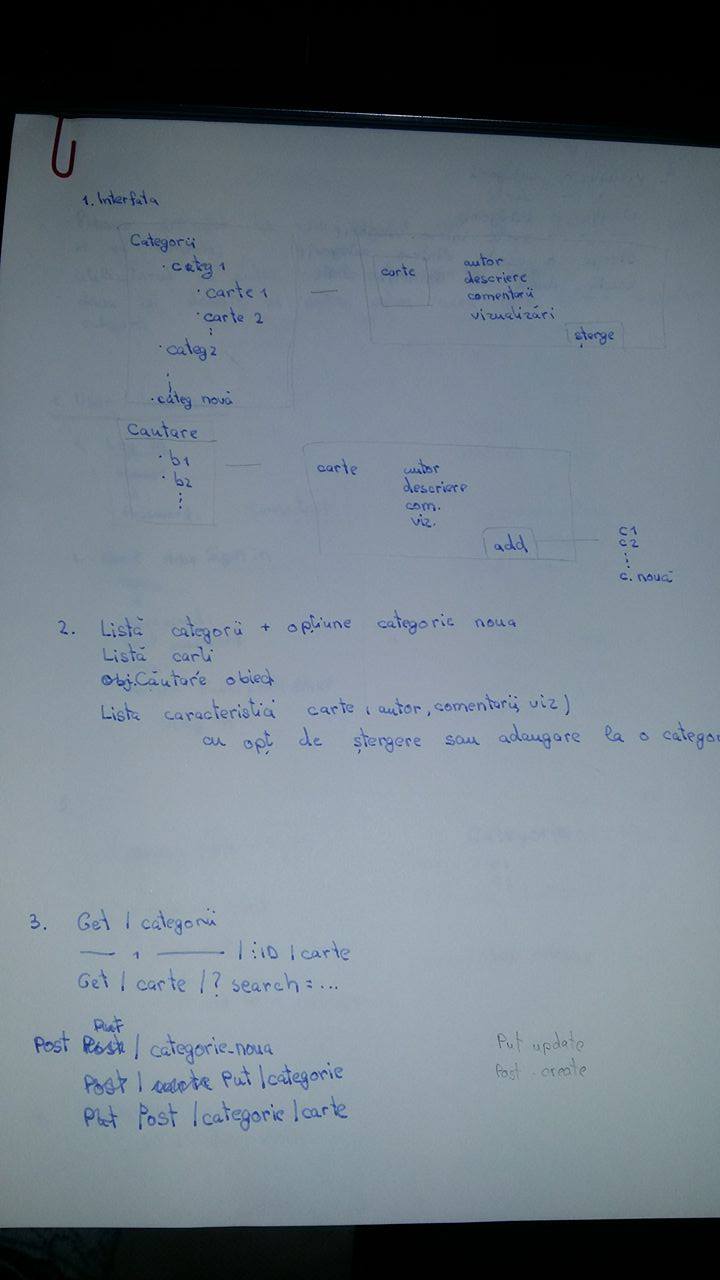 1. Interfata
Categorii
· categ 1
· carte 1
· carte 2
· categ 2
· categ nouă
carte
autor
descriere
comentarii
vizualizări
șterge
Cautare
· b1
· b2
carte
autor
descriere
com.
viz.
add
C1
C2
c. nouă
2. Listă categorii + opțiune categorie noua
Listă carti
Obj. Căutare obiect
Lista caracteristici carte (autor, comentarii, viz)
cu opț de ștergere sau adaugare la o categor
3. Get / categorii
—— " ——— / :ID / carte
Get / carte / ? search = ...
Put
Post / categorie_noua
Post / Put / categorie
Post / categorie / carte
Put update
Post - create